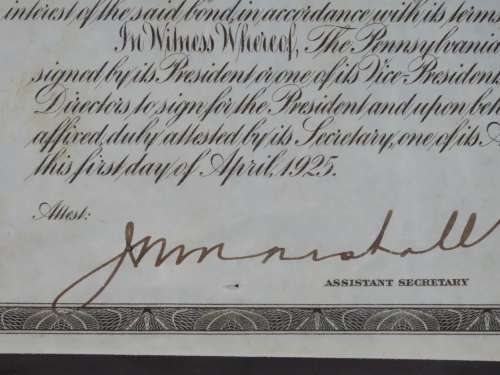 interest of the said bond, in accordance with its terms
In Witness Whereof, The Pennsylvania
signed by its President or one of its Vice-President
Directors to sign for the President and upon beh
affixed, duly attested by its Secretary, one of its A
this first day of April, 1925.
Attest:
J W Marshall
ASSISTANT SECRETARY